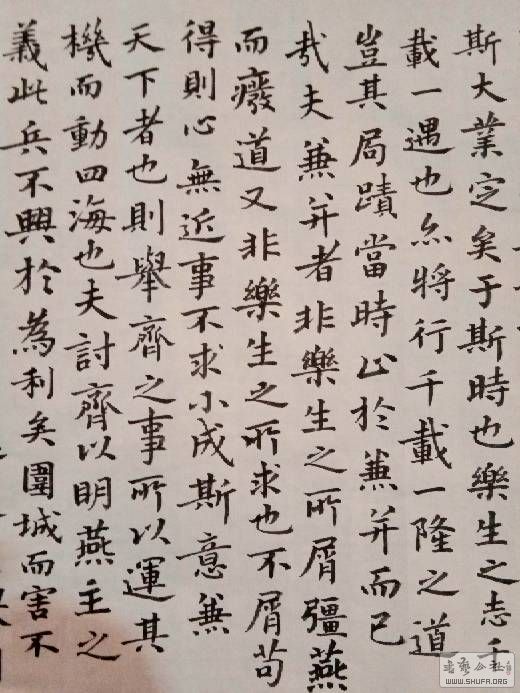 斯大業定矣于斯時也樂生之志千
載一遇也亦將行千載一隆之道
豈其局蹟當時止於兼并而已
哉夫兼并者非樂生之所屑彊燕
而癈道又非樂生之所求也不屑苟
得則心無近事不求小成斯意兼
天下者也則舉齊之事所以運其
機而動四海也夫討齊以明燕主之
義此兵不興於為利矣圍城而害不
書藝公社
WWW.SHUFA.ORG